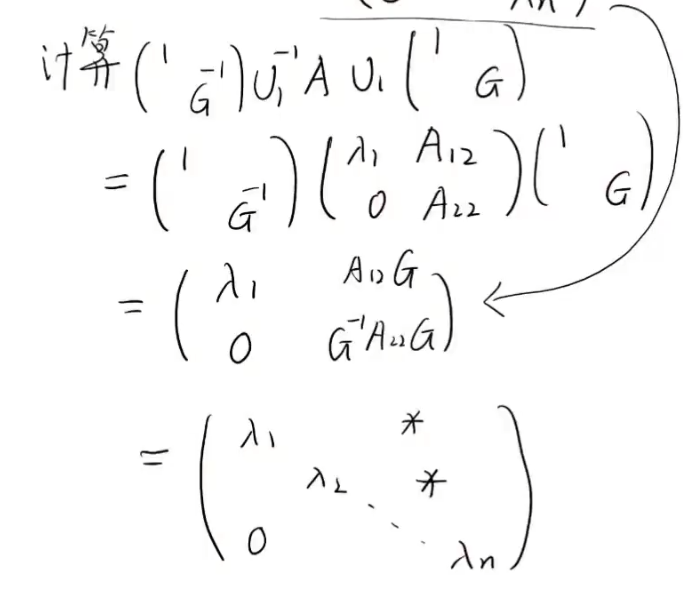 λn )
计算 ( 1 G⁻¹ ) U₁⁻¹ A U₁ ( 1 G )
= ( 1 G⁻¹ ) ( λ₁ A₁₂ 0 A₂₂ ) ( 1 G )
= ( λ₁ A₁₂G 0 G⁻¹A₂₂G )
= ( λ₁ * λ₂ * ⋱ 0 λn )